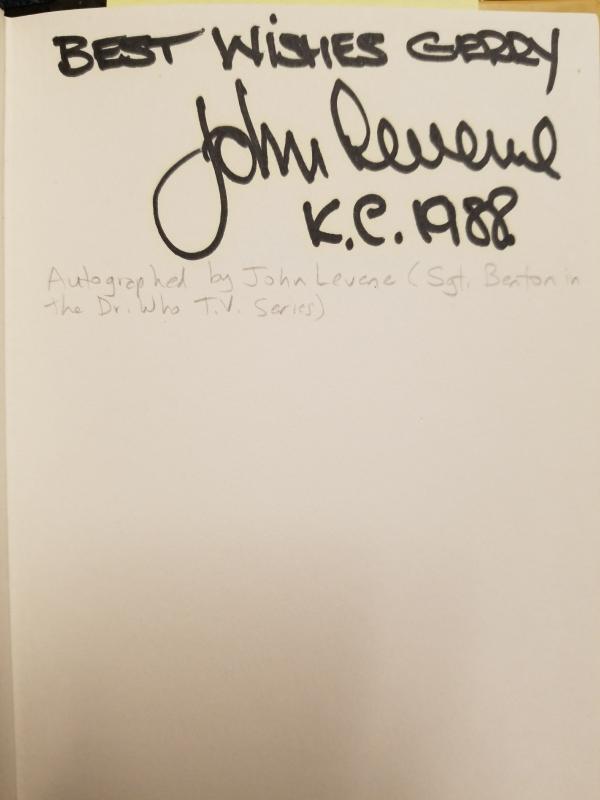 BEST WISHES GERRY
John Levene
K.C. 1988
Autographed by John Levene (Sgt. Benton in
the Dr. Who T.V. Series)